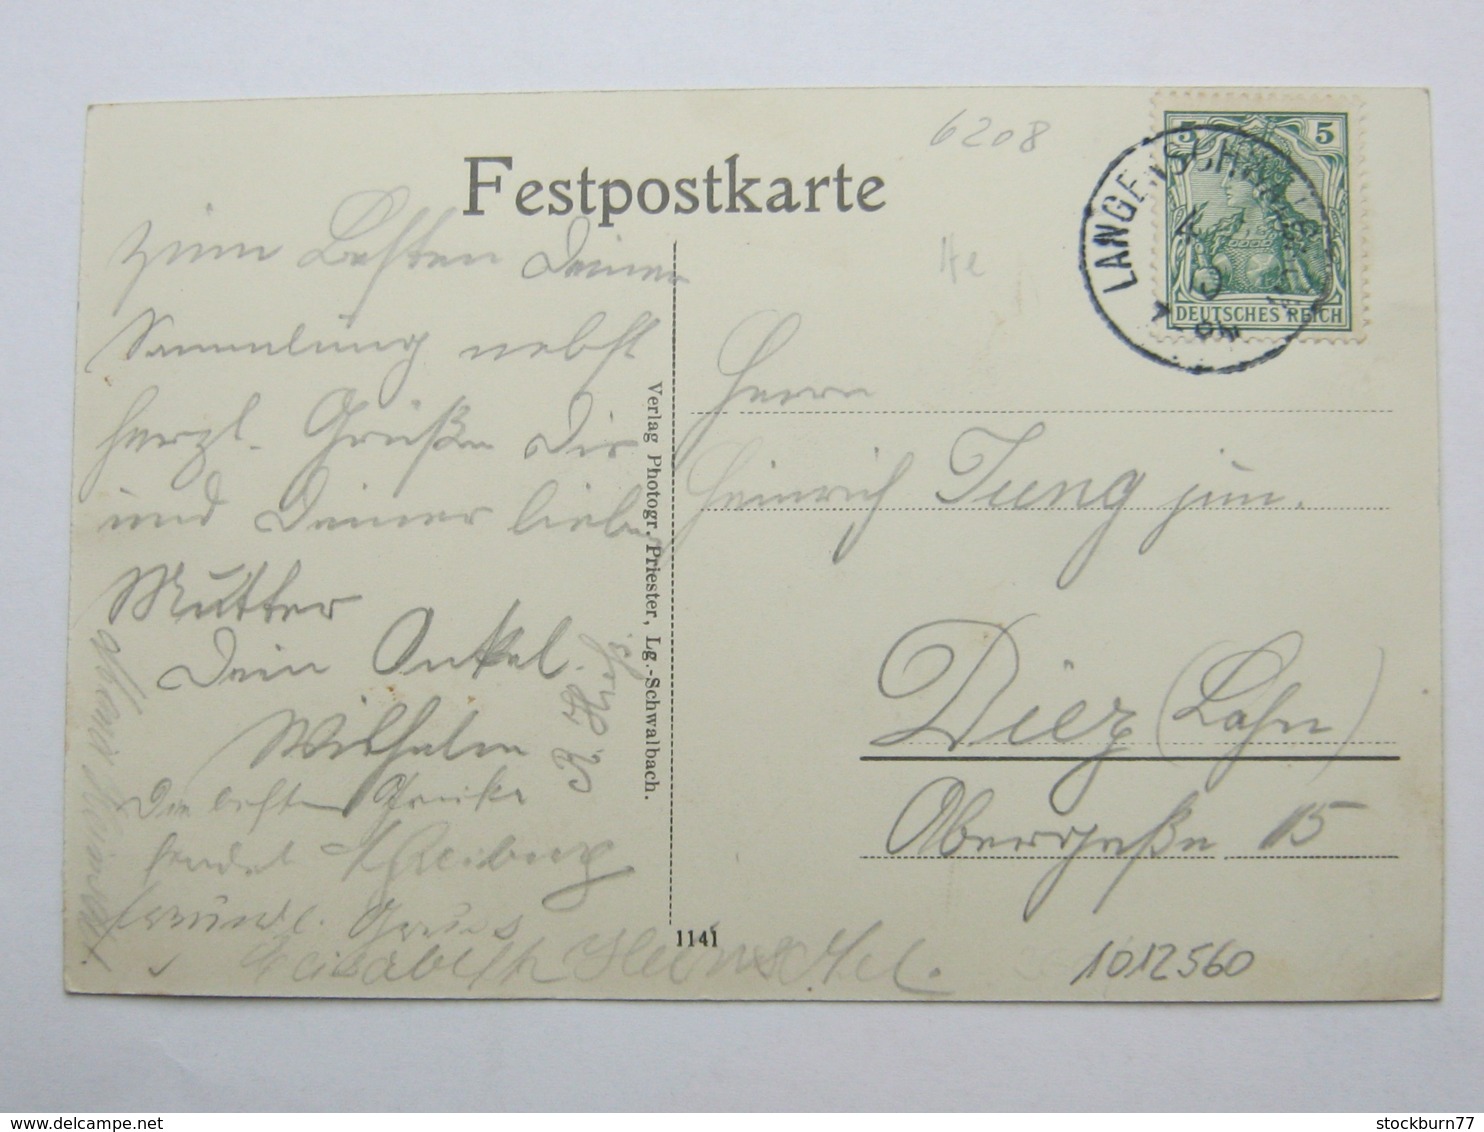 6208
Festpostkarte
He
5 5
DEUTSCHES REICH
LANGENSCHWALBACH
zum Besten Deiner
Sammlung nebst
herzl. Grüße Dir
und Deiner lieben
Mutter
Dein Onkel
Wilhelm
Die besten Grüße
sendet
freundl. Gruss
Elisabeth
Verlag Photogr. Priester, Lg.-Schwalbach.
1141
Herrn
Heinrich Jung jun.
Diez (Lahn)
Obergasse 15
1012560
www.delcampe.net
stockburn77